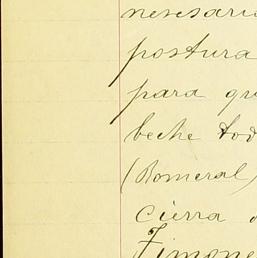 nesesario
postura
para qu
beche tod
(Romeral)
cierra
Timone